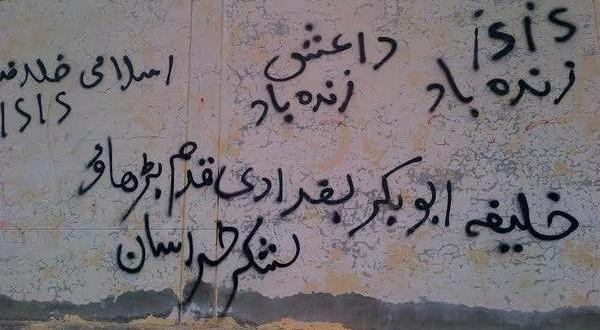 isis
زنده باد
داعش
زنده باد
اسلامی
ISIS
خلیفہ ابوبکر بغدادی قدم بڑھاؤ
لشکر خراسان